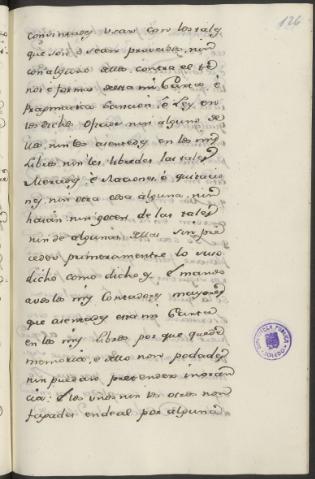 126
consintades usar con los tales
que son o sean proveidos, nin
con alguno dellos contra el te
nor e forma desta mi Carta e
Pragmatica Sancion e Ley en
los dichos Oficios nin alguno de
llos, nin les asentedes en los mis
Libros nin les libredes las tales
Mercedes e Raciones e quitacio
nes, nin otra cosa alguna, nin
hayan nin gocen de las tales
nin de algunas dellas sin pre
ceder primeramente lo suso
dicho como dicho es, e mando
a vos los mis Contadores mayores
que asentedes esta mi Carta
en los mis Libros por que quede
memoria, e dello non podades
nin puedan pretender ignoran
cia: E los unos nin los otros non
fagades ende al por alguna
BIBLIOTECA PUBLICA
TOLEDO